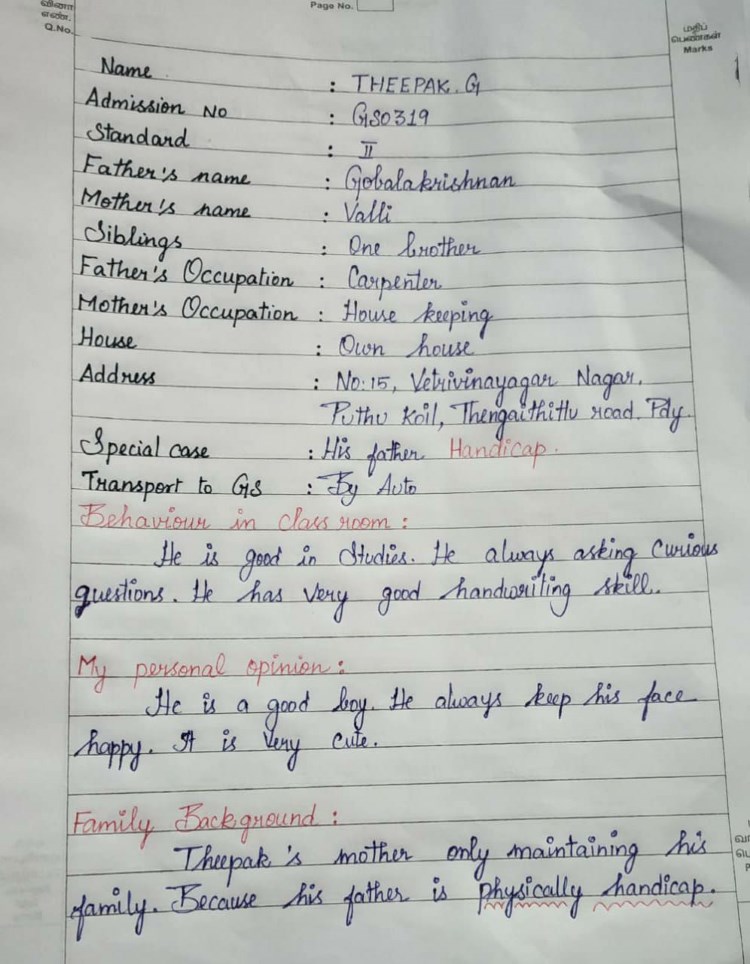 வினா
எண்.
Q.No.
Page No.
மதிப்
பெண்கள்
Marks
Name : THEEPAK. G
Admission No : GS0319
Standard : II
Father's name : Gobalakrishnan
Mother's name : Valli
Siblings : One brother
Father's Occupation : Carpenter
Mother's Occupation : House keeping
House : Own house
Address : No: 15, Vetrivinayagar Nagar,
Puthu Koil, Thengaithittu road. Pdy.
Special case : His father Handicap.
Transport to GS : By Auto
Behaviour in class room :
He is good in Studies. He always asking Curious
questions. He has very good handwriting skill.
My personal opinion :
He is a good boy. He always keep his face
happy. It is very cute.
Family Background :
Theepak's mother only maintaining his
family. Because his father is physically handicap.